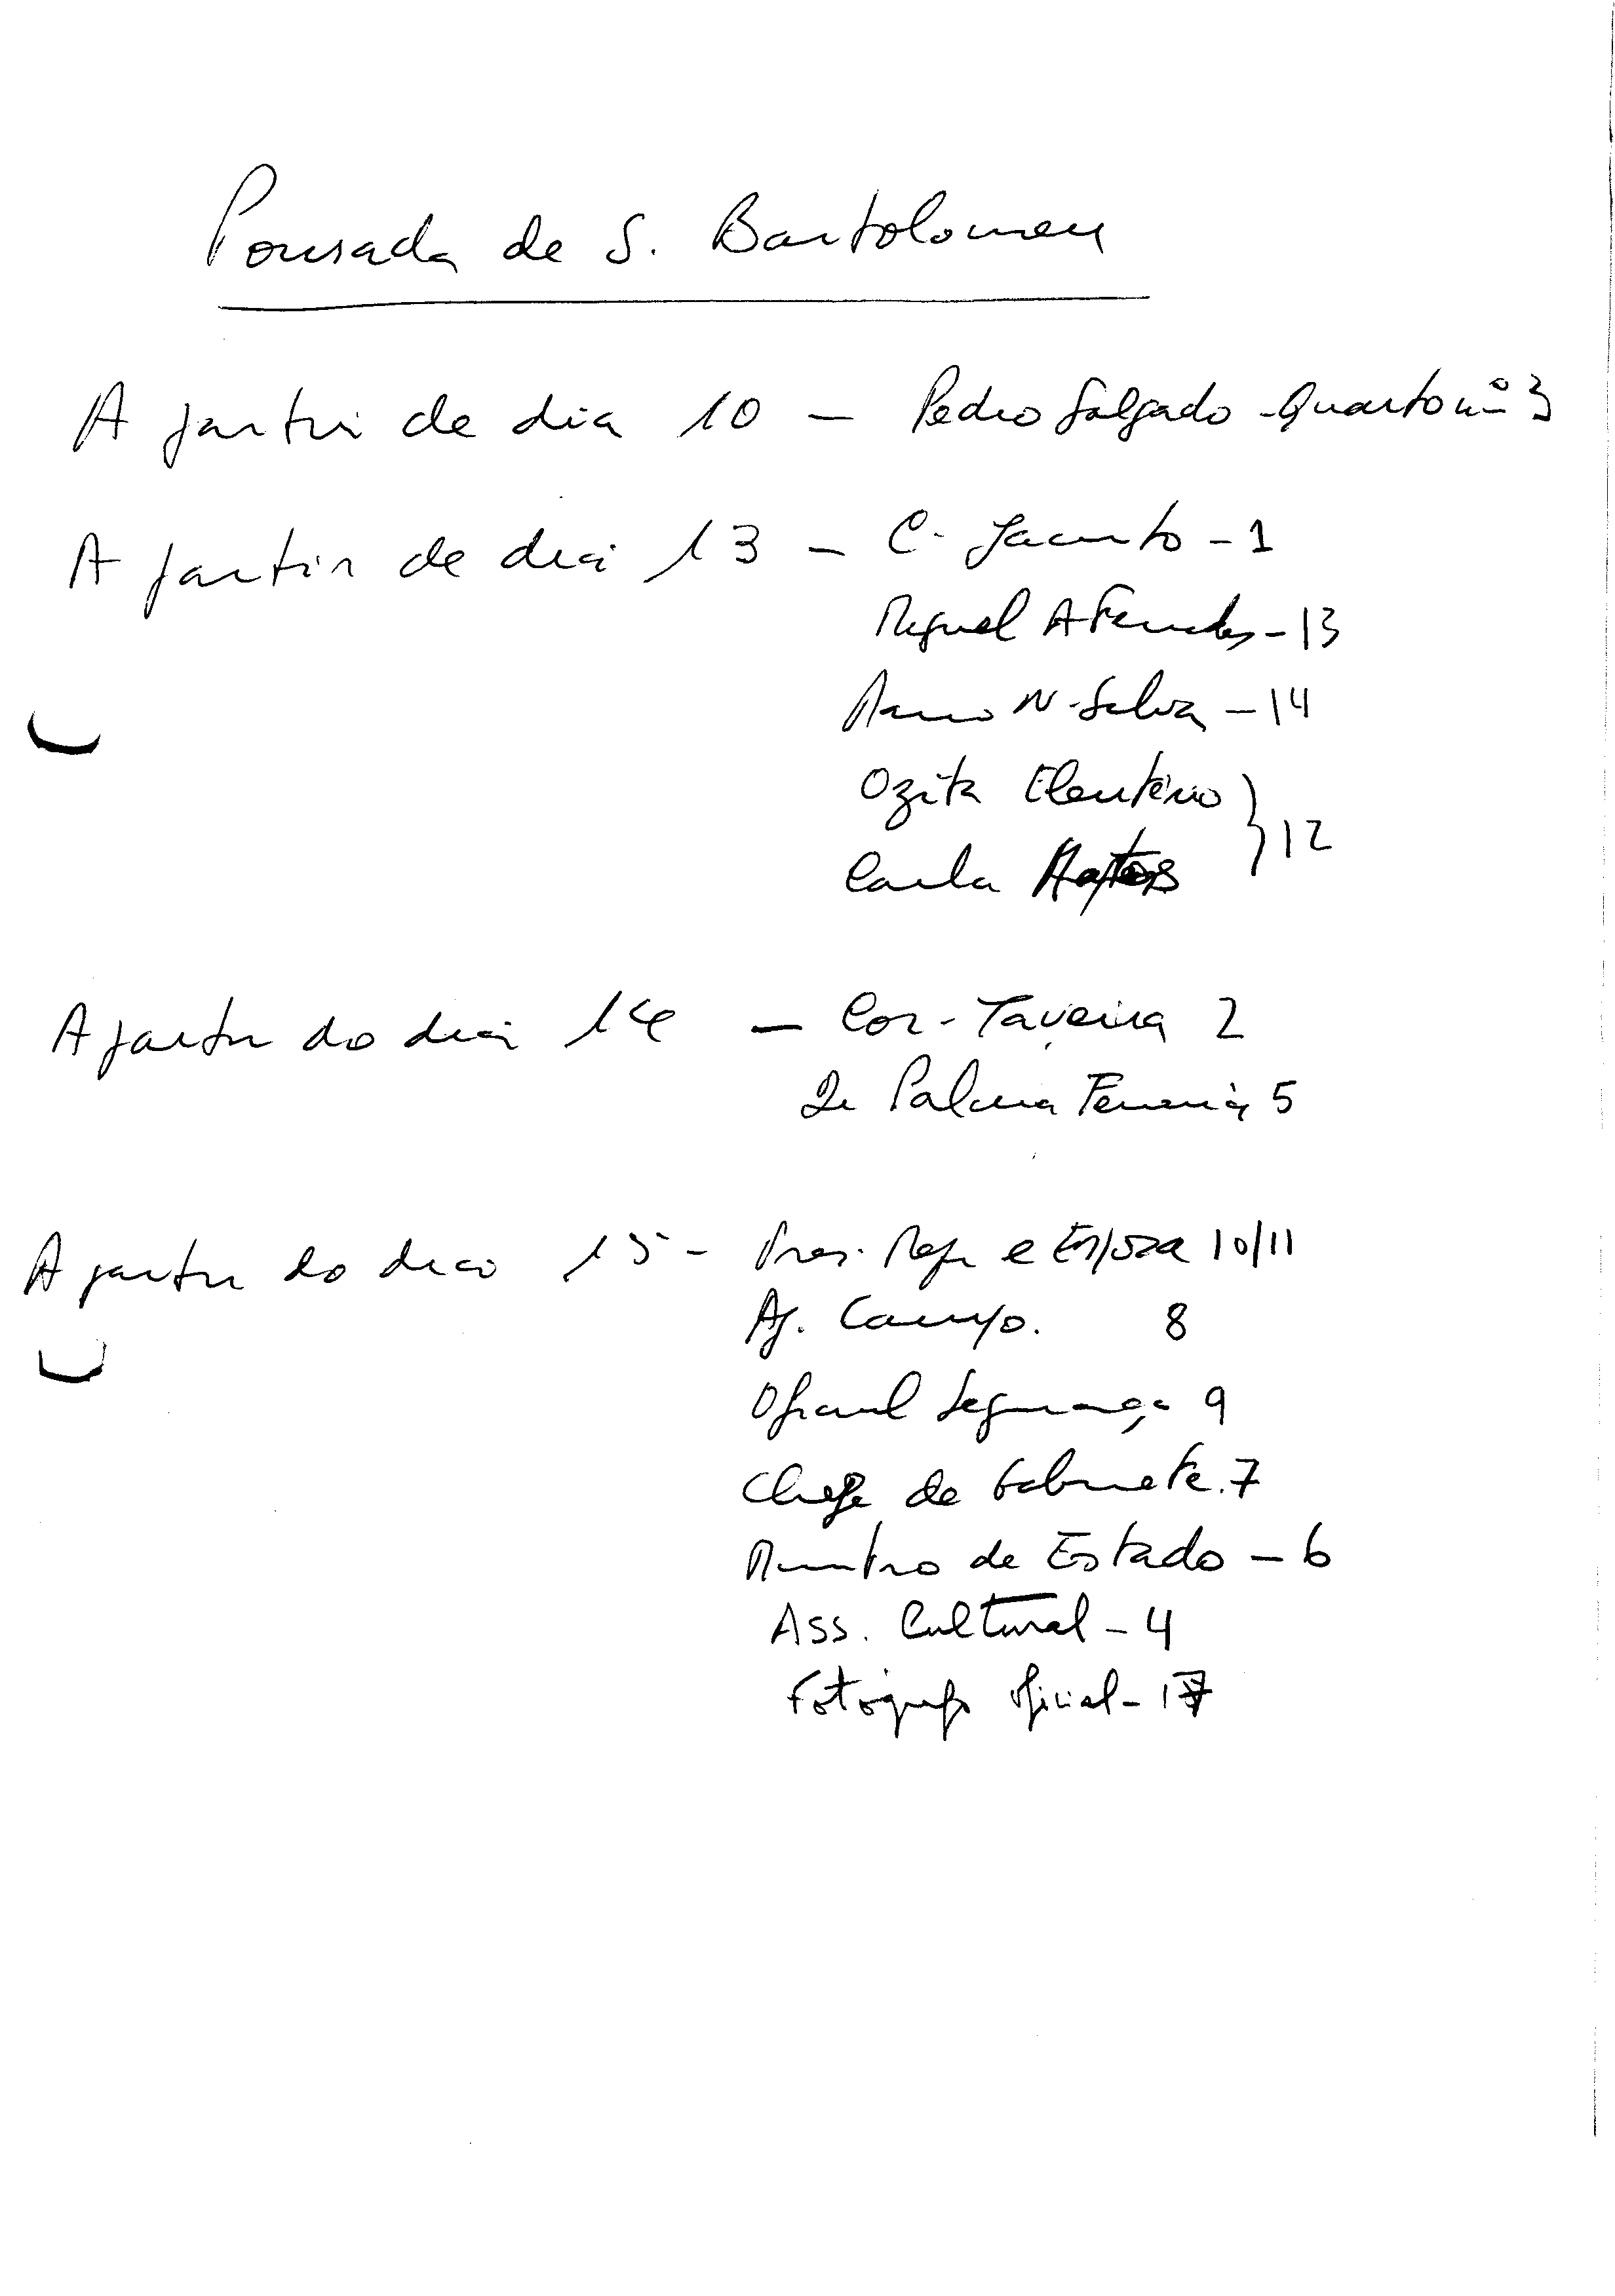 Pousada de S. Bartolomeu
A partir de dia 10 - Pedro Salgado - Quarto nº 3
A partir de dia 13 - C. Jacinto - 1
Miguel A Fernandes - 13
N. Silva - 14
Ozita Eleutério } 12
Carla Matos
A partir do dia 14 - Cor. Taveira 2
Palma Ferreira 5
A partir do dia 15 - Pres. Rep e Esposa 10/11
Aj. Campo. 8
Oficial Segurança 9
Chefe de Gabinete. 7
Ministro de Estado - 6
Ass. Cultural - 4
Fotógrafo Oficial - 17